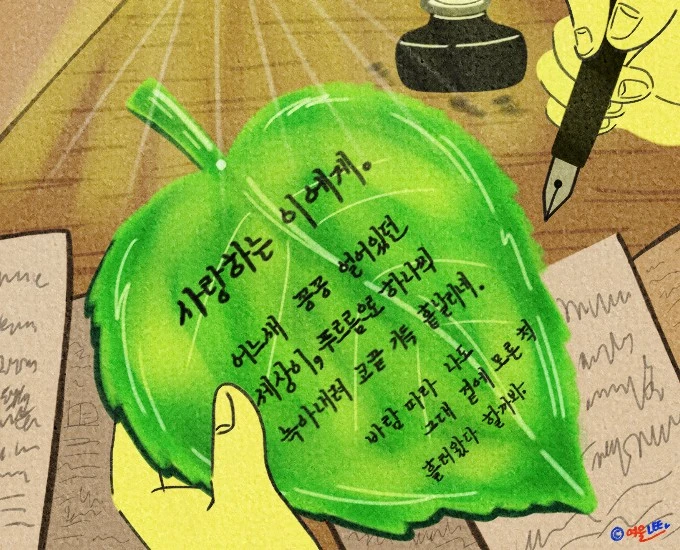 사랑하는 이에게.
어느새 꽁꽁 얼어있던
세상이, 푸르름으로 하나의
녹아내려 코끝 가득 흩날리네.
바람 따라 나도
그대 곁에 모른 척
흘러왔다 할까봐
©여울